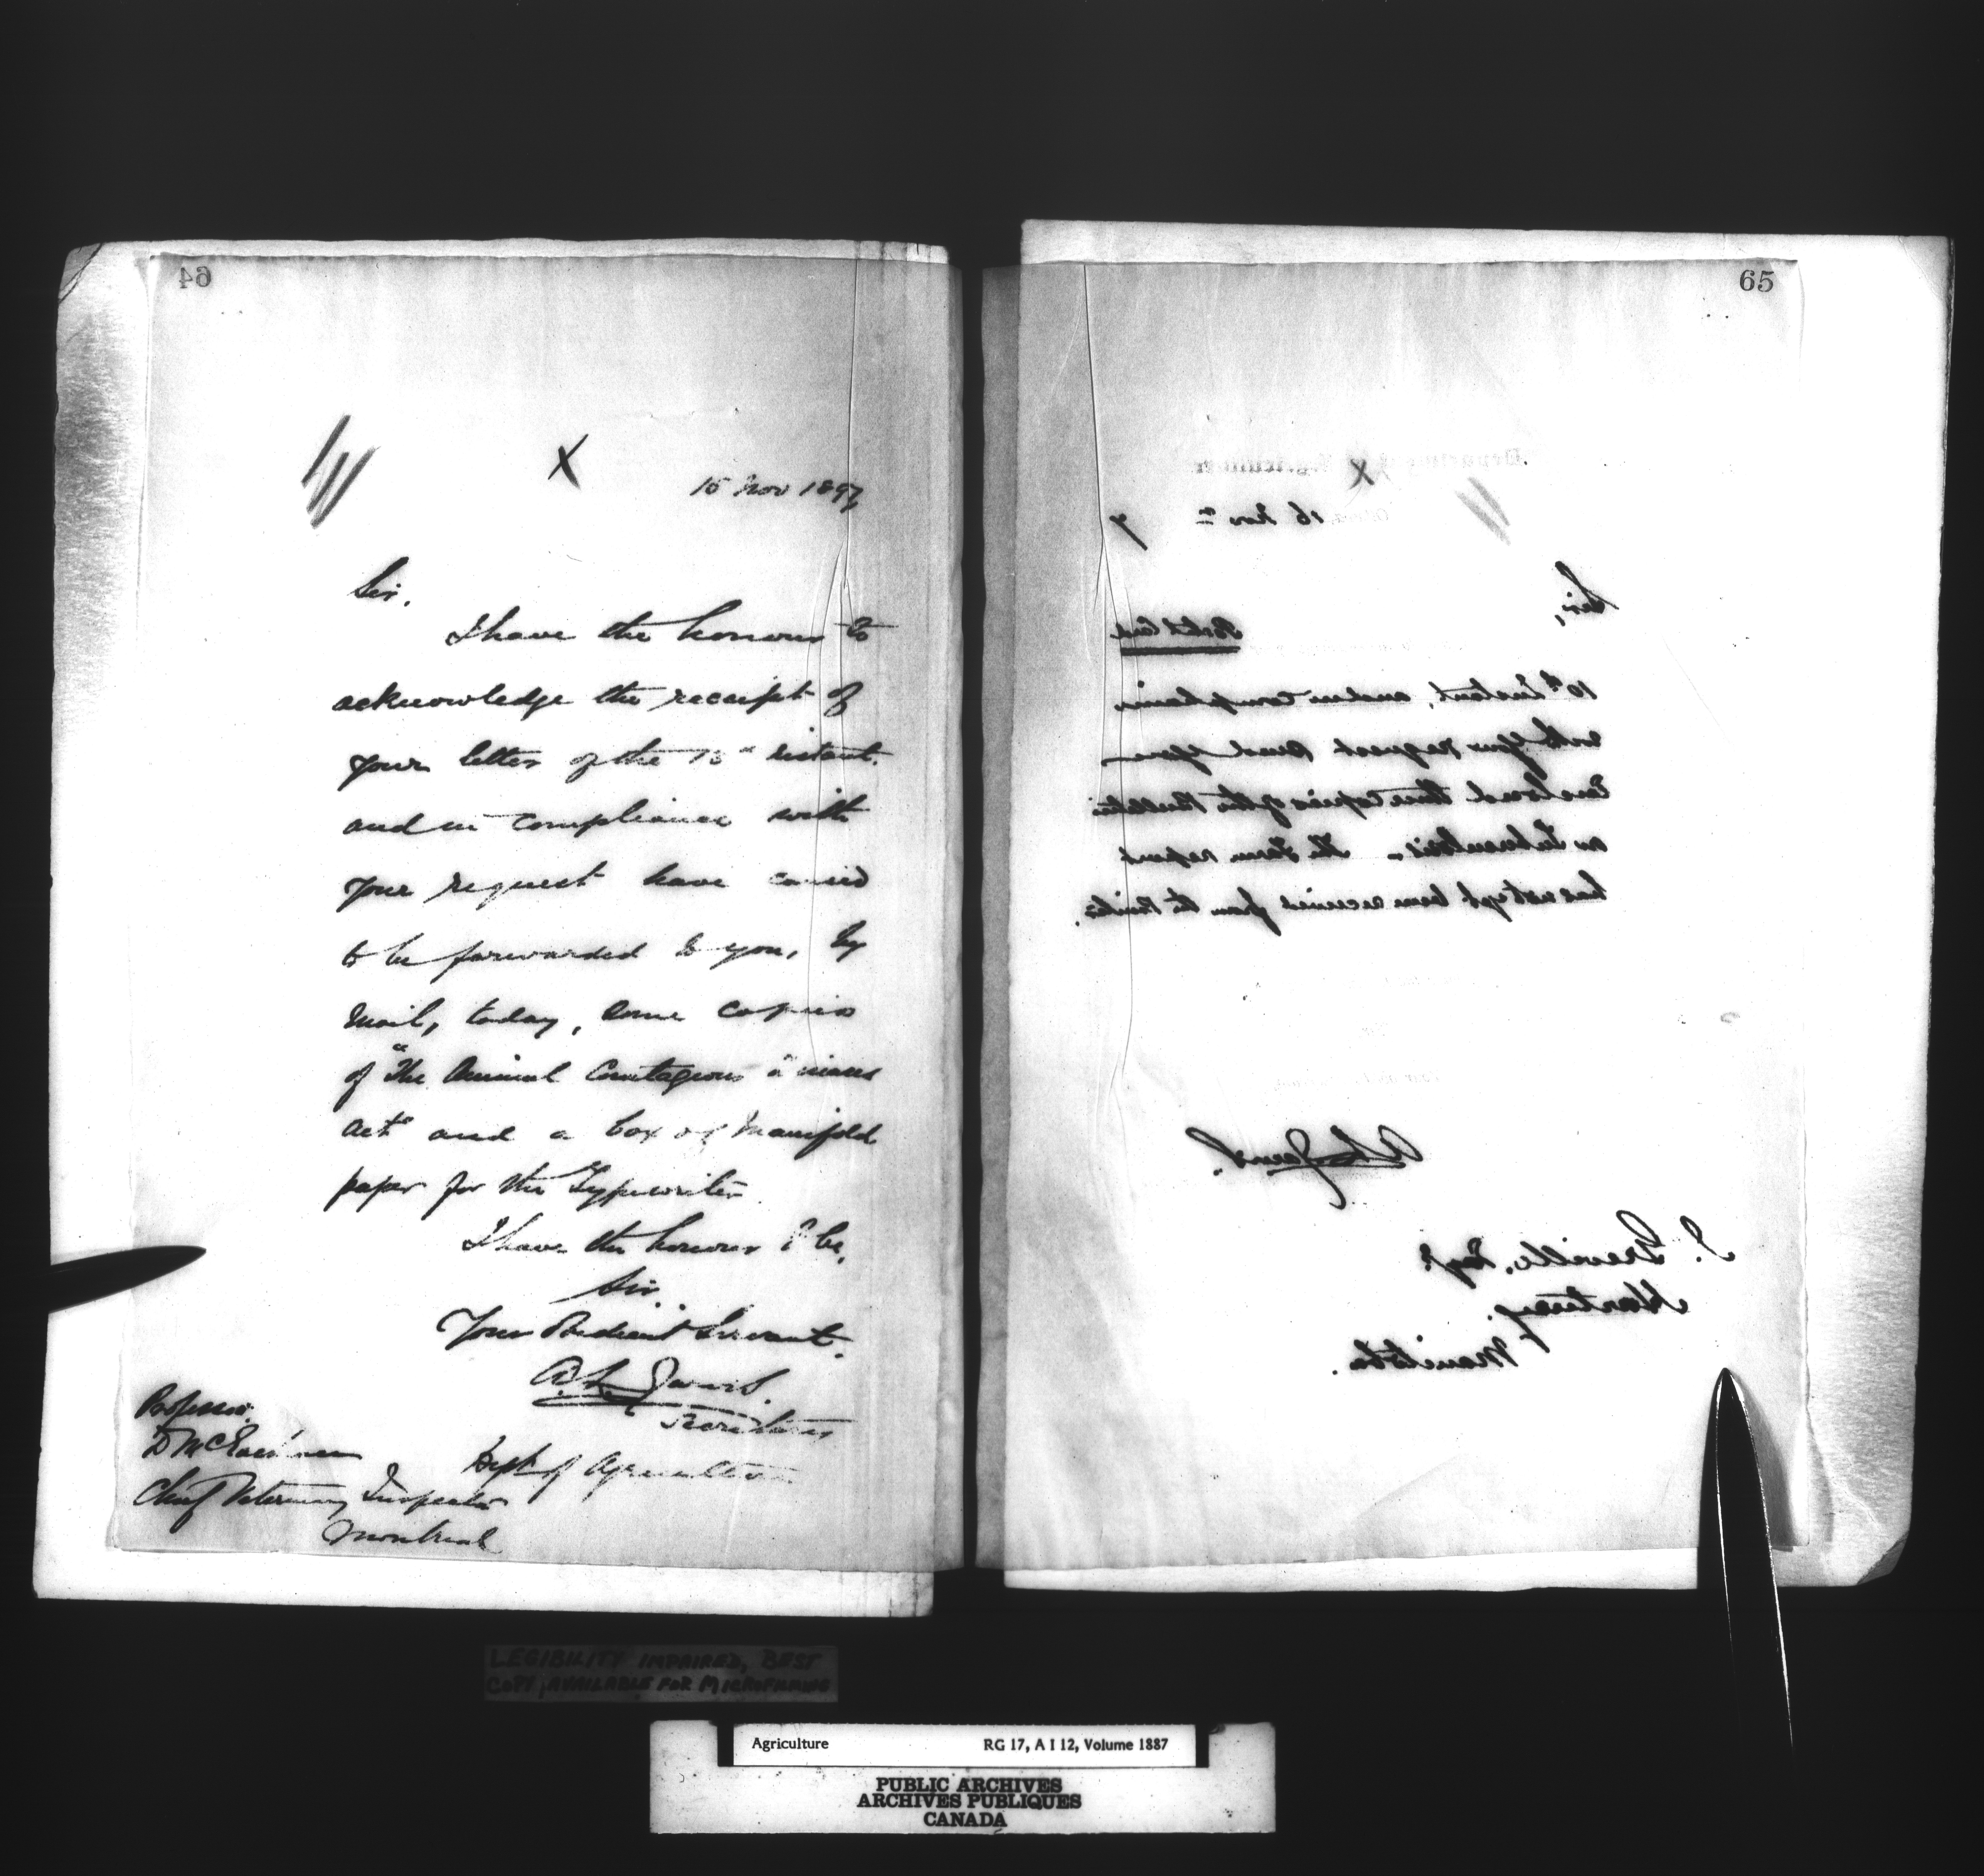 64
15 Nov 1897
Sir,
I have the honour to
acknowledge the receipt of
your letter of the 13th instant.
and in compliance with
your request have caused
to be forwarded to you, by
mail, today, some copies
of "The Animal Contagious Diseases
Act" and a box of Manifold
paper for the Typewriter.
I have the honour to be,
Sir,
Your Obedient Servant.
A. L. Jarvis.
Secretary
Dept of Agriculture
Professor
D McEachran
Chief Veterinary Inspector
Montreal
65
Department of Agriculture
Ottawa, 16 Nov 7
Sir,
Postal Card
10th Instant, and in compliance
with your request send you
Enclosed three copies of the Bulletin
on Tuberculosis. The Farm report
has not yet been received from the Printer.
A. L. Jarvis.
J. Greville, Esq.
Hartney,
Manitoba.
LEGIBILITY IMPAIRED, BEST
COPY AVAILABLE FOR MICROFILMING
Agriculture RG 17, A I 12, Volume 1887
PUBLIC ARCHIVES
ARCHIVES PUBLIQUES
CANADA